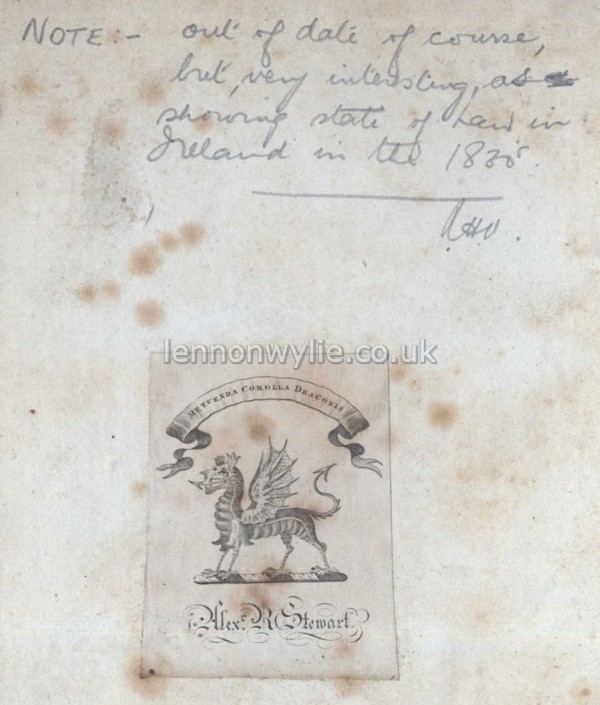 NOTE:- out of date of course,
but, very interesting, as
showing state of Law in
Ireland in the 1830s.
lennonwylie.co.uk
METUENDA COROLLA DRACONIS
Alexr. R Stewart